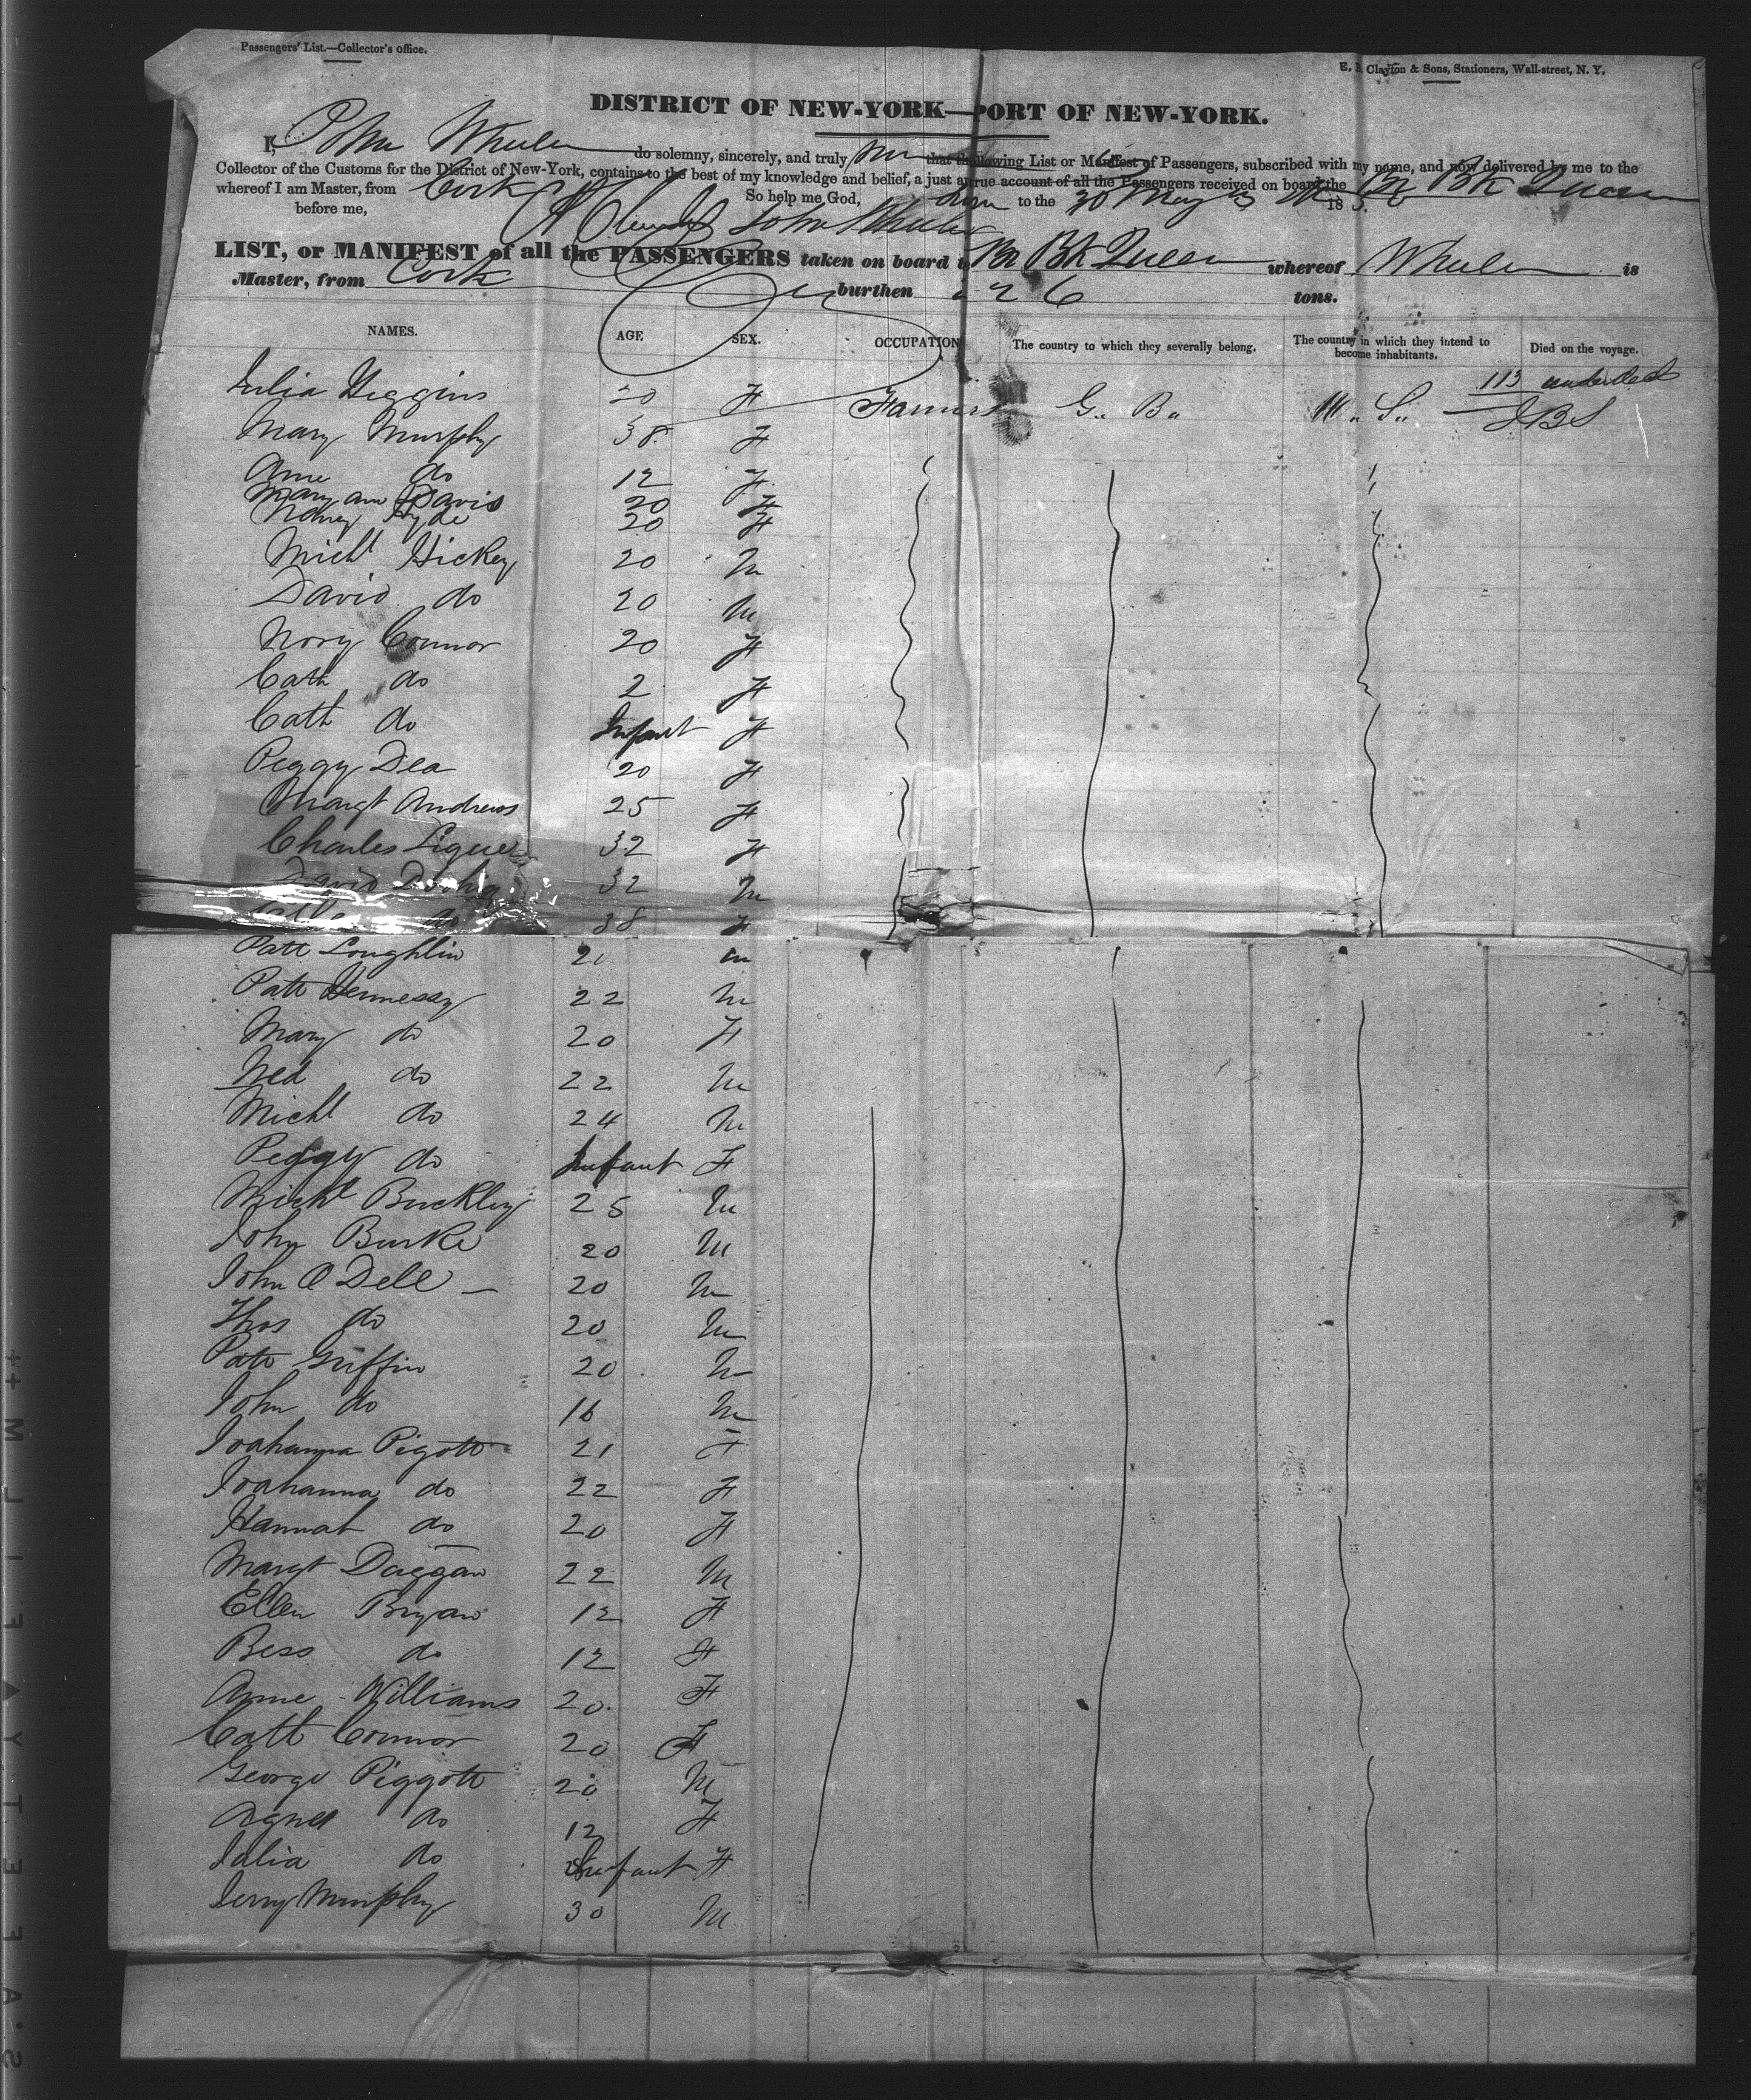 Passengers' List.—Collector's office.
E. B. Clayton & Sons, Stationers, Wall-street, N. Y.
DISTRICT OF NEW-YORK—PORT OF NEW-YORK.
I, John Wheeler do solemny, sincerely, and truly that the following List or Manifest of Passengers, subscribed with my name, and now delivered by me to the
Collector of the Customs for the District of New-York, contains to the best of my knowledge and belief, a just and true account of all the Passengers received on board the Br Bk Queen
whereof I am Master, from Cork So help me God,
before me, to the 30 May 18 John Wheeler
LIST, or MANIFEST of all the PASSENGERS taken on board the Br Bk Queen whereof Wheeler is
Master, from Cork burthen 26 tons.
NAMES. AGE SEX. OCCUPATION The country to which they severally belong. The country in which they intend to become inhabitants. Died on the voyage.
113 under deck
Julia Higgins 20 F Farmers G.. B.. U.. S.. JBS
Mary Murphy 38 F
Anne do 12 F
Mary ann Davis 20 F
Nancy Hyde 20 F
Michl Hickey 20 M
David do 20 M
Nory Connor 20 F
Cath do 2 F
Cath do Infant F
Peggy Dea 20 F
Margt Andrews 25 F
Charles 32 F
David 32 M
do 38 F
Patt Loughlin 20 M
Patt Hennessy 22 M
Mary do 20 F
Ned do 22 M
Michl do 24 M
Peggy do Infant F
Michl Buckley 25 M
John Burke 20 M
John O Dell 20 M
Thos do 20 M
Patt Griffin 20 M
John do 16 M
Joahanna Pigott 21 F
Joahanna do 22 F
Hannah do 20 F
Margt Duggan 22 M
Ellen Bryan 12 F
Bess do 12 F
Anne Williams 20 F
Catt Connor 20 F
George Piggott 20 M
Agnes do 12 F
Julia do Infant F
Jerry Murphy 30 M